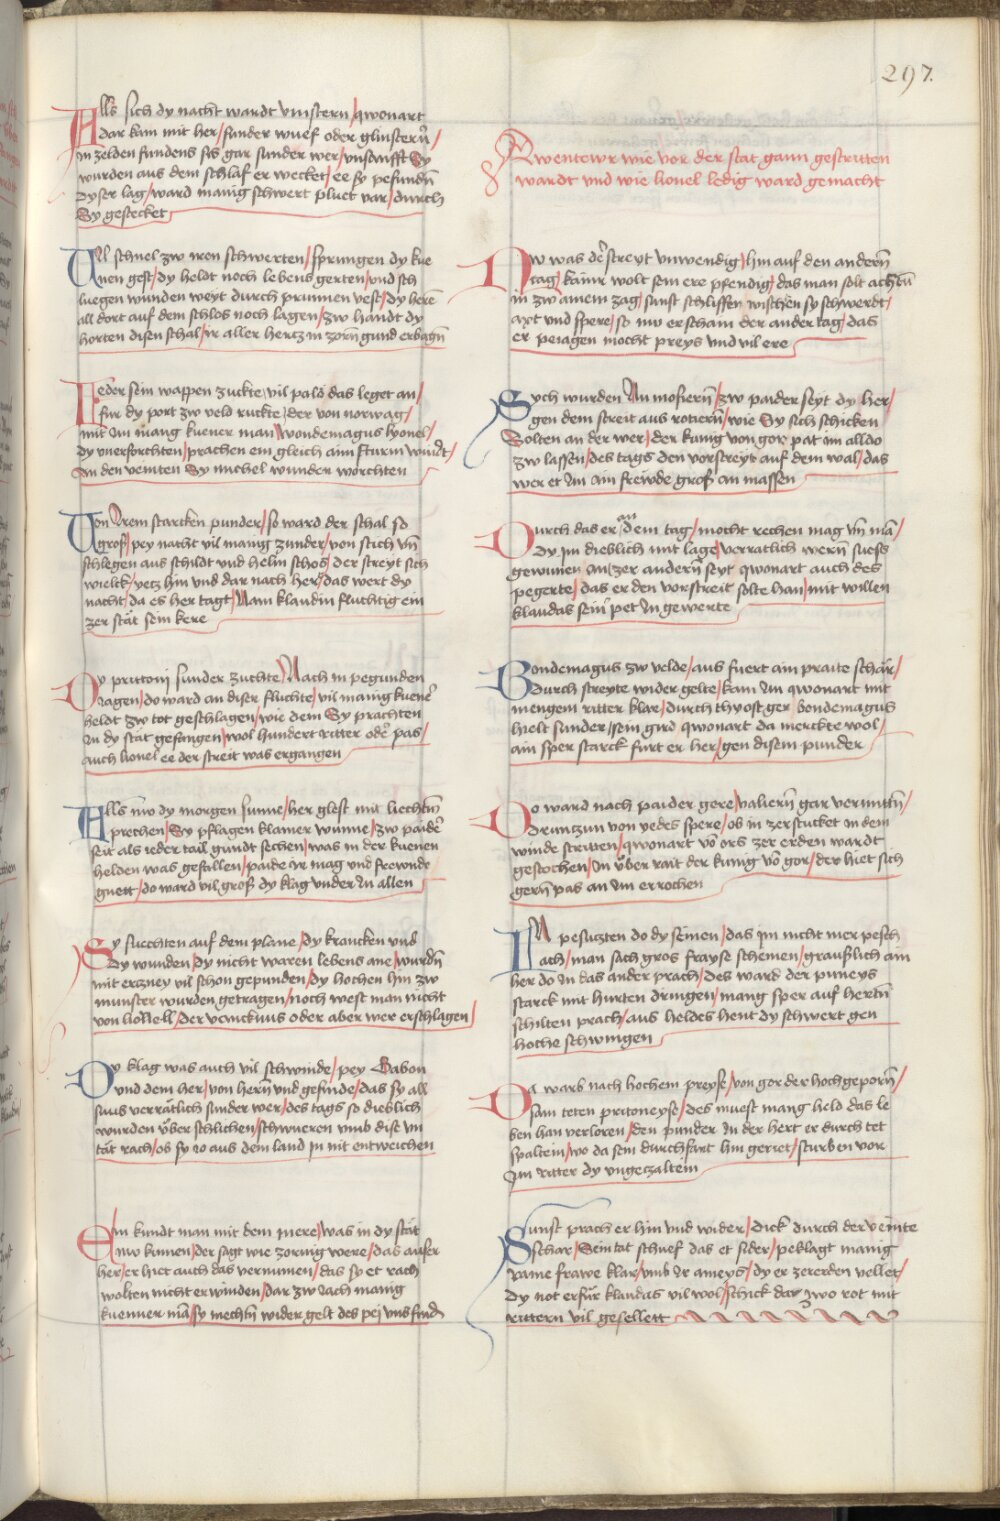 297.
Alls sich dy nacht wardt vinstern / qwonart
dar kam mit her / sunder wuef oder glinstern /
in zelden fundens sis gar sunder wer / vnsanfft Sy
wurden aus dem schlaf er wecket / ee sy pefundn
dyser lag / ward manig schwert pluet var / durch
Sy gestecket
Vil schnel zw iren schwerten / sprungen dy kue
nen gest / dy heldt noch lebens gerten / vnd sch
luegen wunden weyt durch prunnen vest / dy heren
all dort auf dem schlos noch lagen / zw handt dy
horten disen schal / ir aller hertz in zorn gund erbagn
Ieder sein wappen zuckte / vil pald das leget an /
fur dy port zw veld ruckte / der von norwag /
mit im mang kuener man / wondemagus lyonel /
dy vnerforchten / prachen ein gleich ainn sturm windt /
An den veinten Sy michel wunder worchten
Von Irem starcken punder / so ward der schal so
gros / pey nacht vil manig zunder / von stich vn
schlegen aus schildt vnd helm schos / der streyt sich
wielck / yetz hin vnd dar nach her / das wert dy
nacht / da es her tagt / Nam klaudin fluchtig ein
zer stat sein kere
Dy prittonj sunder zuchte / Nach in pegunden
Iagen / do ward an diser fluchte / vil manig kuener
heldt zw tot geschlagen / wie dem Sy prachten
In dy stat gefangen / wol hundert ritter oder pas /
auch lionel ee der streit was ergangen
Alls nw dy morgen sunne / her glest mit liechtm
prechen / Sy pflagen klainer wunne / zw paider
seit als ieder tail gundt sechen / was in der kuenen
helden was gefallen / paide ir mag vnd frewnde
guett / do ward vil gros dy klag vnder In allen
Sy suechten auf dem plane / dy krancken vnd
dy wunden / dy nicht waren lebens ane / wurdn
mit erzney vil schon gepunden / dy hochen hin zw
munster wurden getragen / noch west man nicht
von lionell / der venncknus oder aber wer erschlagen
Dy klag was auch vil schwinde / pey Babon
vnd dem her / von hern vnd gesinde / das sy all
suus verrätlich sunder wer / des tags so dieblich
wurden über schlichen / schwueren vmb dise vn
tät rach / ob sy io aus dem land in nit entweichen
Ein kundt man mit dem mere / was in dy stat
nw kumen / der sagt wie zornig were / das ausser
her / er hiet auch das vernumen / das sy et rach
wolten nicht er winden / dar zw nach manig
kuenner man / sy mechtn wider gelt des pej
Awentewr wie vor der stat gann gestritten
wardt vnd wie lionel ledig ward gemacht
Now was der streyt vnwendig / hin auf den andern
tag / kainr wolt sein ere pfendig / das man solt achtn
in zw ainem zag / sunst schliffen wischen sy schwerdt /
axt vnd spere / so nw erschain der ander tag / das
er peiagen mocht preys vnd vil ere
Sych wurden An mosiern / zw paider seyt dy her /
gen dem streit aus rotiern / wie Sy sich schicken
Solten an der wer / der kunig von gor pat im alldo
zw lassen / des tags den vorstreyt auf dem wal / das
wer et Im ain frewde gros an massen
Durch das er an dem tag / mocht rechen mag vn man /
Dy im dieblich mit lage / verratlich wern suess
gewunen an / zer andern seyt qwonart auch des
pegerte / das er den vorstreit solte han / mit willen
klaudas sein pet In gewerte
Bondemagus zw velde / aus fuert ain praite schar /
durch streyte wider gelte / kam Im qwonart mit
mengem ritter klar / durch thyost ger bondemagus
hielt sunder / sein gird qwonart da merckte wol /
ain sper starck furt er her / gen disem punder
Do ward nach paider gere / valiern gar vermittn /
Drunzun von yedes spere / ob in zerstucket in dem
winde stritten / qwonart von ors zer erden wardt
gestochen / In über rait der kunig von gor / der hiet sich
gern pas an Im errochen
In pesuzten do dy seinen / das im nicht mer pesch
ach / man sach gros frayse scheinen / grausslich ain
her do in das ander prach / des ward der puneys
starck mit hurten dringen / mang sper auf hertn
schilten prach / aus heldes hent dy schwert gen
hoche schwingen
Da warb nach hochem preyse / von gor der hochgeporn /
sam teten pritoneyse / des muest mang held das le
ben han verloren / den punder In der hert er durch tet
spaltein / wo da sein durchfart hin geriet / sturben vor
Im ritter dy vngezaltem
Sunst prach er hin vnd wider / dick durch der veinte
schar / Sein tat schuef das et sider / peklagt manig
raine frawe klar / vmb ir ameys / dy er zererden vellet /
Dy not erfur klaudas vil wol / schick dar zwo rot mit
rittern vil gesellett